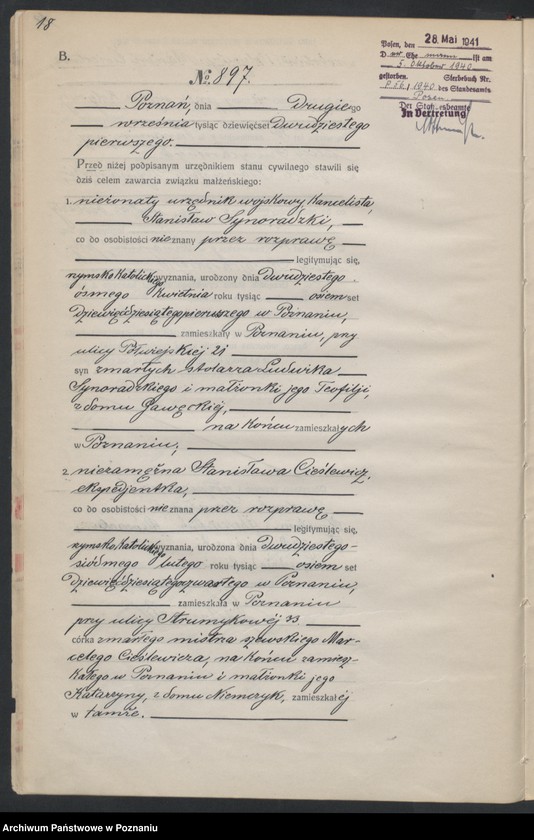 18
B.
№ 897.
Posen, den 28. Mai 1941
D Ehe ist am
5. Oktober 1940
gestorben. Sterbebuch Nr.
1940 des Standesamts
Posen.
Der Standesbeamte
In Vertretung
Poznań, dnia Drugiego
września tysiąc dziewięćset dwudziestego
pierwszego.
Przed niżej podpisanym urzędnikiem stanu cywilnego stawili się
dziś celem zawarcia związku małżeńskiego:
1. nieżonaty urzędnik wojskowy, kancelista,
Stanisław Synoradzki,
co do osobistości nieznany przez rozprawę
legitymując się,
rzymsko katolickiego wyznania, urodzony dnia dwudziestego
ósmego kwietnia roku tysiąc osiemset
dziewięćdziesiątego pierwszego w Poznaniu,
zamieszkały w Poznaniu, przy
ulicy Półwiejskiej 21
syn zmarłych stolarza Ludwika
Synoradzkiego i małżonki jego Teofilji,
z domu Gawęckiej,
na końcu zamieszkałych
w Poznaniu;
2. niezamężna Stanisława Cieślewicz,
ekspedjentka,
co do osobistości nieznana przez rozprawę
legitymując się,
rzymsko katolickiego wyznania, urodzona dnia dwudziestego-
siódmego lutego roku tysiąc osiemset
dziewięćdziesiątego czwartego w Poznaniu,
zamieszkała w Poznaniu
przy ulicy Strumykowéj 33.
córka zmarłego mistrza szewskiego Mar-
celego Cieślewicza, na końcu zamiesz-
kałego w Poznaniu i małżonki jego
Katarzyny, z domu Niemczyk, zamieszkałéj
w tamże.
Archiwum Państwowe w Poznaniu